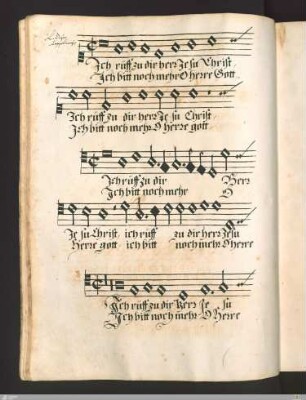 Ich rüff zu dir herr Je su Christ
Ich bitt noch mehr O herre Gott
Ich rüff zu dir herr Je su Christ
Ich bitt noch mehr O herre gott
Ich rüff zu dir Herr
Ich bitt noch mehr O
Je su Christ ich rüff zu dir herr Je su
Herre gott ich bitt noch mehr O herre
Ich rüff zu dir Herr Je su
Ich bitt noch mehr O Herre